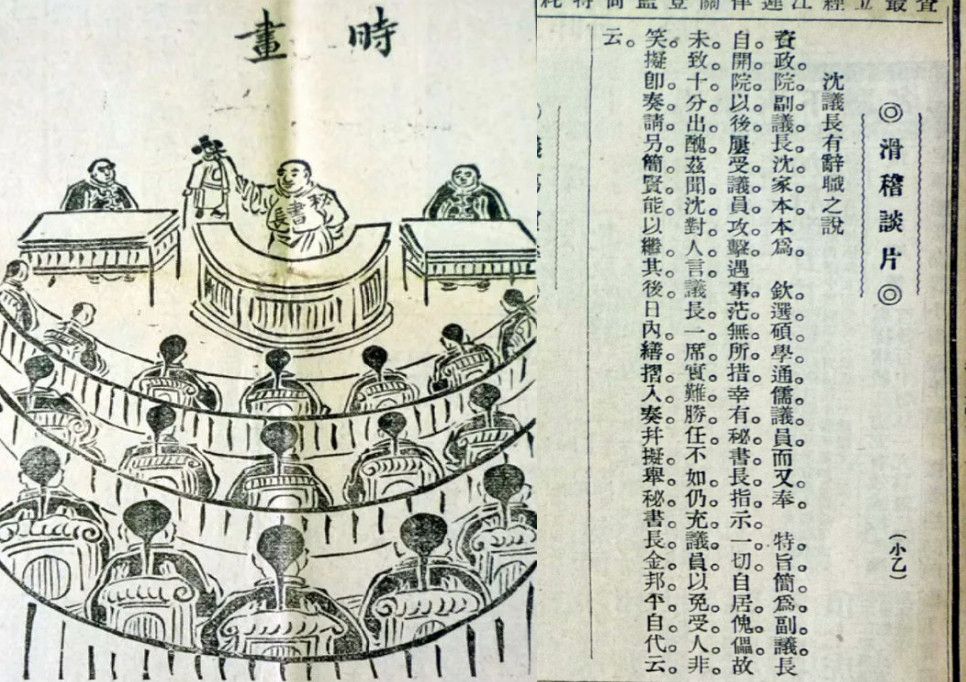 時畫
秘書長
◎滑稽談片◎
(小乙)
沈議長有辭職之說
資政院副議長沈家本本爲　欽選碩學通儒議員而又奉　特旨簡爲副議長
自開院以後屢受議員攻擊遇事茫無所措幸有秘書長指示一切自居傀儡故
未致十分出醜茲聞沈對人言議長一席實難勝任不如仍充議員以免受人非
笑擬卽奏請另簡賢能以繼其後日內繕摺入奏幷擬舉秘書長金邦平自代云
云。